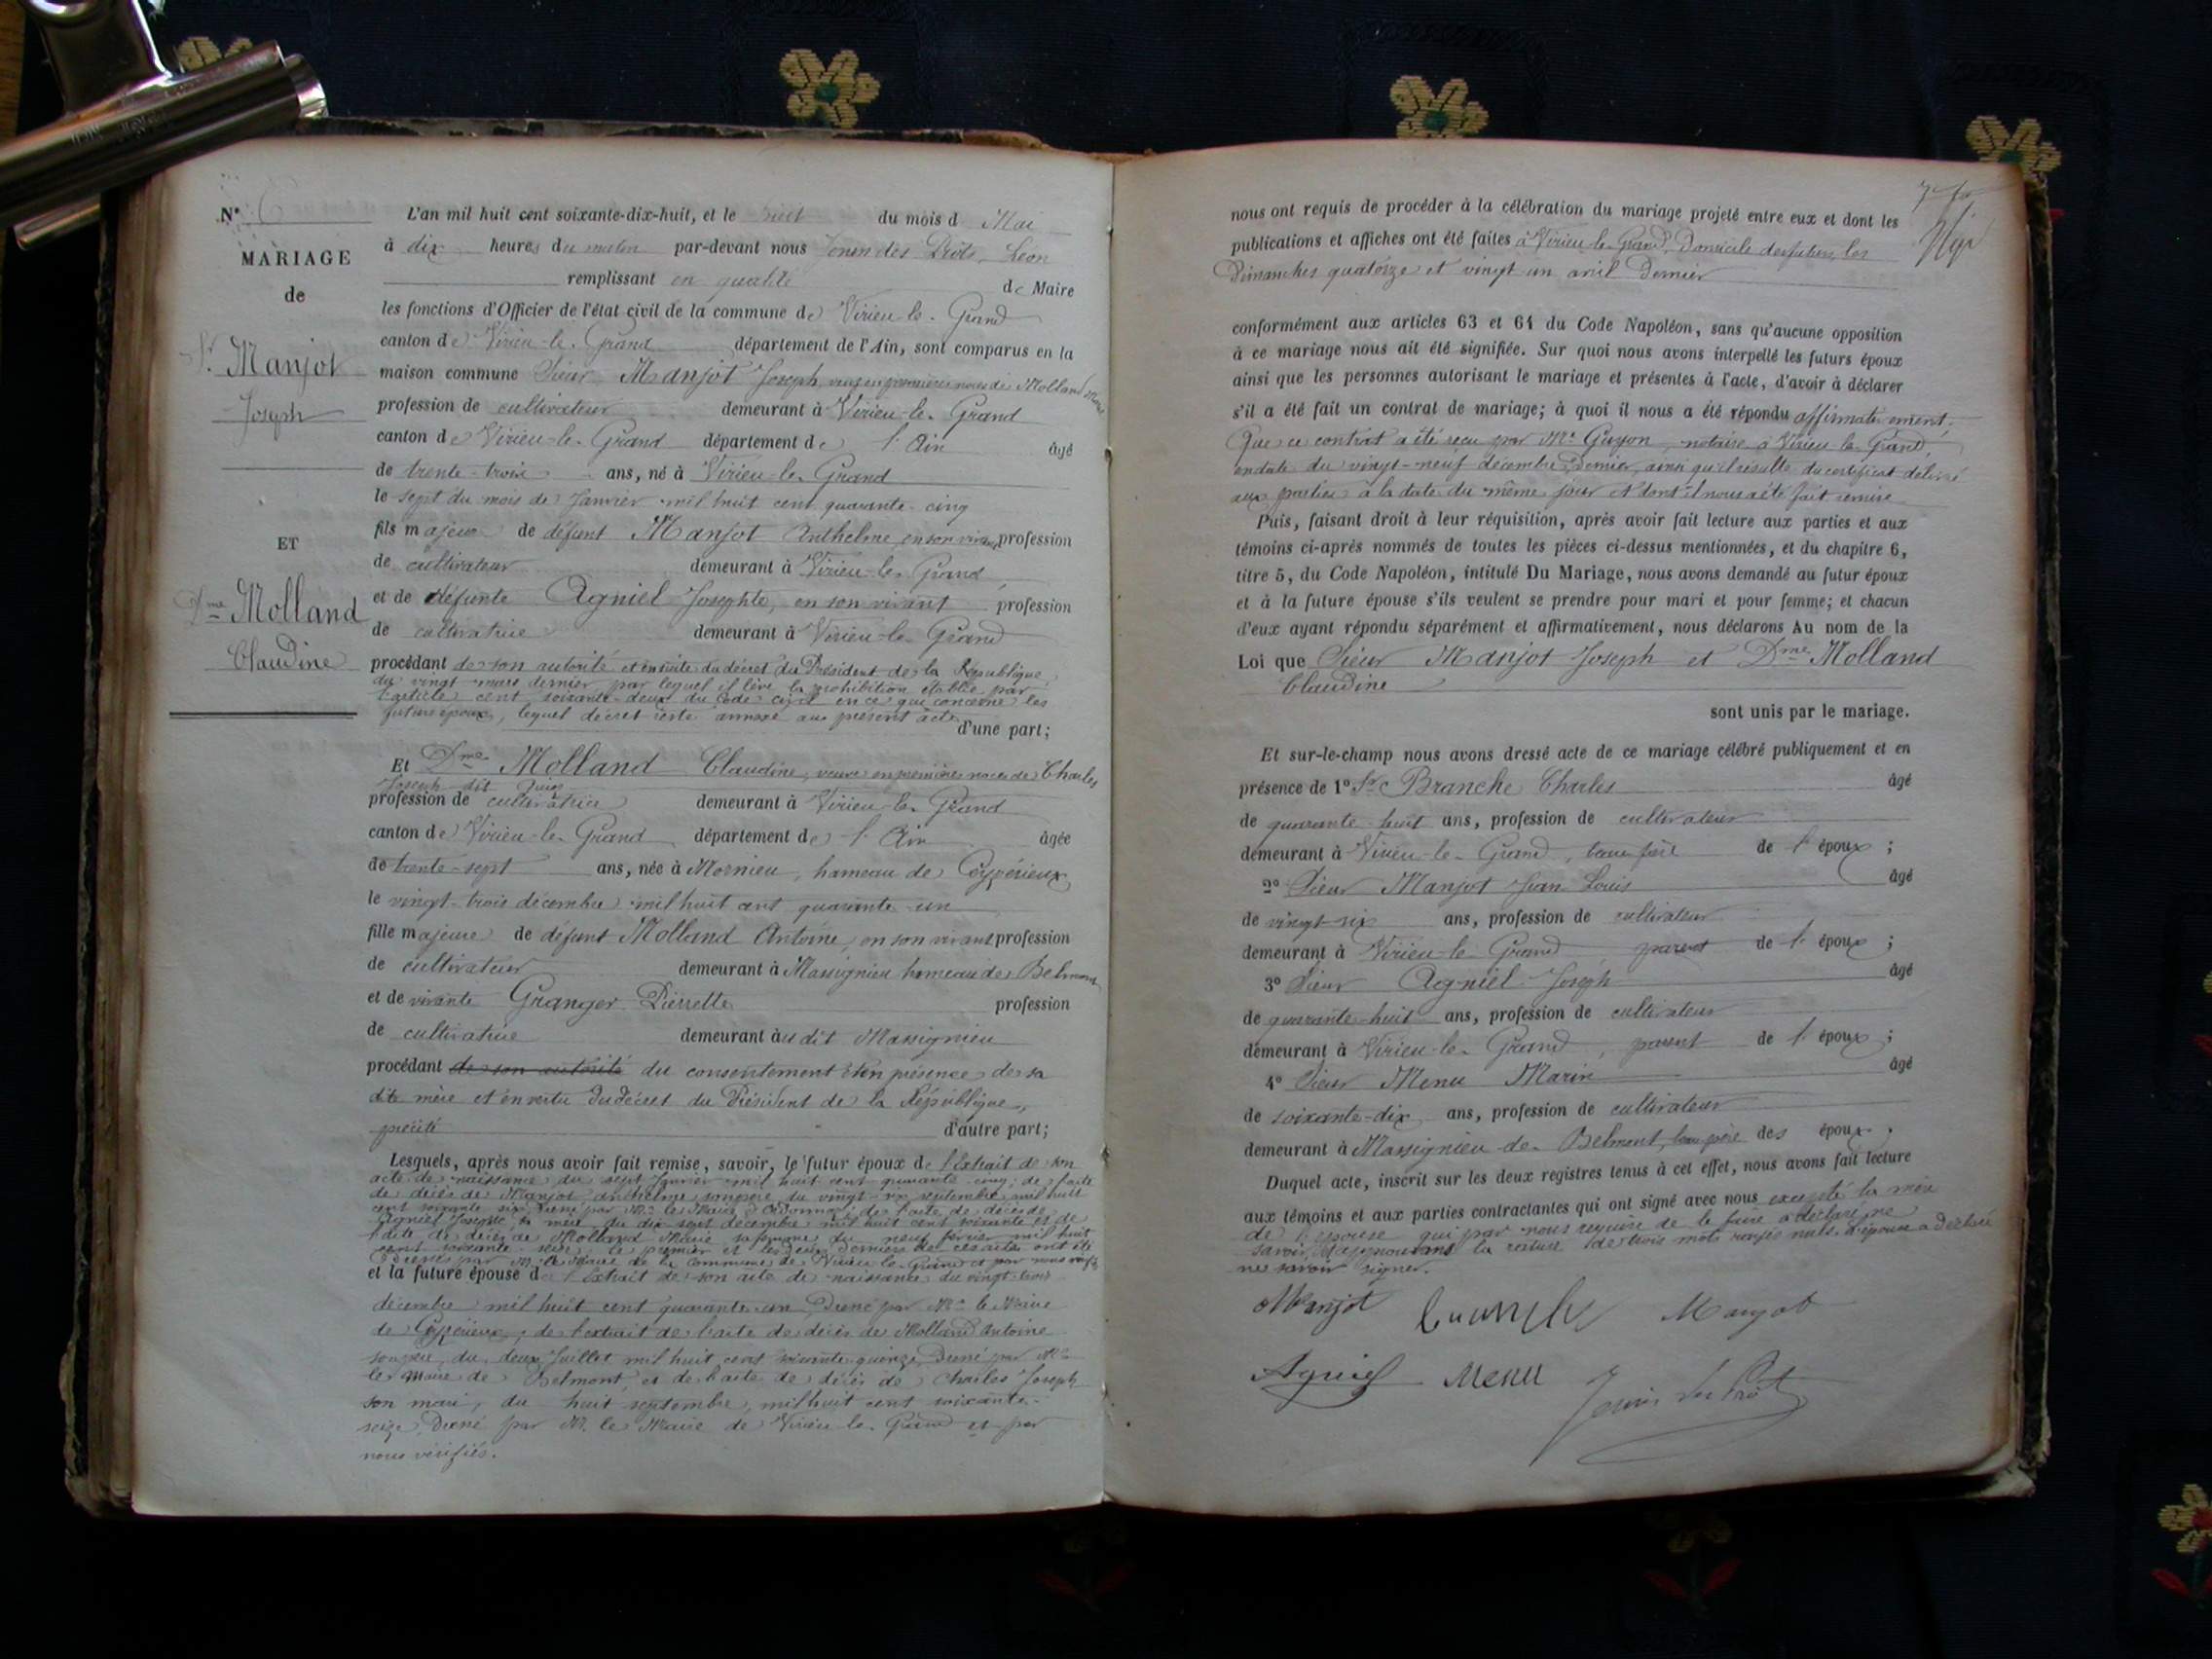 N° 6
MARIAGE
de
Sr Manjot
Joseph
ET
Dme Molland
Claudine
L'an mil huit cent soixante-dix-huit, et le huit du mois d Mai
à dix heures du matin par-devant nous Léon
remplissant en qualité de Maire
les fonctions d'Officier de l'état civil de la commune de Virieu-le-Grand
canton de Virieu-le-Grand département de l'Ain, sont comparus en la
maison commune Sieur Manjot Joseph, veuf en premières noces de Molland Marie
profession de cultivateur demeurant à Virieu-le-Grand
canton de Virieu-le-Grand département de l'Ain âgé
de trente-trois ans, né à Virieu-le-Grand
le sept du mois de Janvier mil huit cent quarante-cinq
fils majeur de défunt Manjot Anthelme, en son vivant profession
de cultivateur demeurant à Virieu-le-Grand
et de défunte Agniel Josephte, en son vivant profession
de cultivatrice demeurant à Virieu-le-Grand
procédant de son autorité et ensuite du décret du Président de la République
du vingt mars dernier par lequel il lève la prohibition établie par
l'article cent soixante-deux du Code civil en ce qui concerne les
futurs époux, lequel décret reste annexé au présent acte
d'une part;
Et Dme Molland Claudine, veuve en premières noces de Charles
Joseph dit
profession de cultivatrice demeurant à Virieu-le-Grand
canton de Virieu-le-Grand département de l'Ain âgée
de trente-sept ans, née à Mornieu, hameau de Ceyzérieux
le vingt-trois décembre mil huit cent quarante-un
fille majeure de défunt Molland Antoine, en son vivant profession
de cultivateur demeurant à Massignieu hameau de Belmont
et de vivante Granger Pierrette profession
de cultivatrice demeurant audit Massignieu
procédant de son autorité du consentement et en présence de sa
dite mère et en vertu du décret du Président de la République,
précité d'autre part;
Lesquels, après nous avoir fait remise, savoir, le futur époux de l'Extrait de son
acte de naissance du sept Janvier mil huit cent quarante-cinq; de l'acte
de décès de Manjot Anthelme son père du vingt-six septembre mil huit
cent soixante six, Dressé par Mr le Maire d' ; de l'acte de décès de
Agniel Josephte, sa mère, du dix sept décembre mil huit cent soixante et de
l'acte de décès de Molland Marie sa femme du neuf février mil huit
cent soixante-seize. Le premier et les deux derniers de ces actes ont été
Dressés par M. le Maire de la Commune de Virieu-le-Grand et par nous vérifiés
et la future épouse de l'Extrait de son acte de naissance du vingt-trois
décembre mil huit cent quarante-un, Dressé par Mr le Maire
de Ceyzérieux, de l'extrait de l'acte de décès de Molland Antoine
son père, du deux Juillet mil huit cent soixante-quinze, Dressé par Mr
le Maire de Belmont, et de l'acte de décès de Charles Joseph
son mari, du huit septembre, mil huit cent soixante-
seize, Dressé par M. le Maire de Virieu-le-Grand et par
nous vérifiés.
nous ont requis de procéder à la célébration du mariage projeté entre eux et dont les
publications et affiches ont été faites à Virieu-le-Grand, Domicile des futurs, les
Dimanches quatorze et vingt un avril Dernier
conformément aux articles 63 et 64 du Code Napoléon, sans qu'aucune opposition
à ce mariage nous ait été signifiée. Sur quoi nous avons interpellé les futurs époux
ainsi que les personnes autorisant le mariage et présentes à l'acte, d'avoir à déclarer
s'il a été fait un contrat de mariage; à quoi il nous a été répondu affirmativement.
Que ce contrat a été reçu par Me Guyon, notaire à Virieu-le-Grand,
en date du vingt-neuf décembre Dernier, ainsi qu'il résulte du certificat délivré
aux parties à la date du même jour et dont il nous a été fait remise
Puis, faisant droit à leur réquisition, après avoir fait lecture aux parties et aux
témoins ci-après nommés de toutes les pièces ci-dessus mentionnées, et du chapitre 6,
titre 5, du Code Napoléon, intitulé Du Mariage, nous avons demandé au futur époux
et à la future épouse s'ils veulent se prendre pour mari et pour femme; et chacun
d'eux ayant répondu séparément et affirmativement, nous déclarons Au nom de la
Loi que Sieur Manjot Joseph et Dme Molland
Claudine
sont unis par le mariage.
Et sur-le-champ nous avons dressé acte de ce mariage célébré publiquement et en
présence de 1° Sr Branche Charles âgé
de quarante-huit ans, profession de cultivateur
demeurant à Virieu-le-Grand, beau frère de l'époux;
2° Sieur Manjot Jean Louis âgé
de vingt-six ans, profession de cultivateur
demeurant à Virieu-le-Grand parent de l'époux;
3° Sieur Agniel Joseph âgé
de quarante-huit ans, profession de cultivateur
demeurant à Virieu-le-Grand, parent de l'époux;
4° Sieur Menu Marin âgé
de soixante-dix ans, profession de cultivateur
demeurant à Massignieu-de-Belmont, beau père des époux.
Duquel acte, inscrit sur les deux registres tenus à cet effet, nous avons fait lecture
aux témoins et aux parties contractantes qui ont signé avec nous excepté la mère
de l'épouse qui par nous requise de le faire a déclaré ne
savoir. la rature de trois mots rayés nuls. L'épouse a déclaré
ne savoir signer.
Manjot Branche Manjot
Agniel Menu